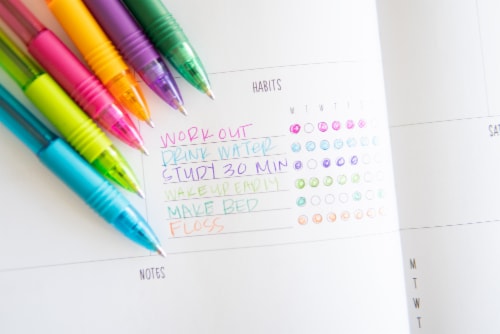 HABITS
M T W T F S S
WORK OUT
DRINK WATER
STUDY 30 MIN
WAKEUP EARLY
MAKE BED
FLOSS
NOTES
SAT
M
T
W
T